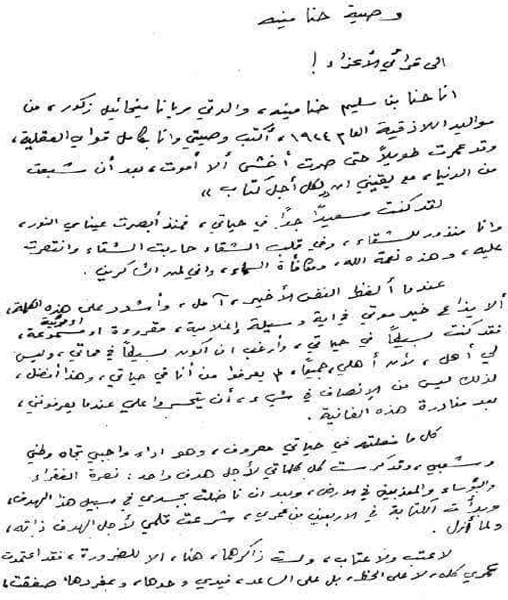 وصية حنا مينه
الى قرائي الأعزاء !
انا حنا بن سليم حنا مينه، والدتي مريانا ميخائيل زكور، من
مواليد اللاذقية العام ١٩٢٤، أكتب وصيتي وانا بكامل قواي العقلية،
وقد عمرت طويلاً حتى صرت أخشى ألا أموت، بعد أن شبعت
من الدنيا، مع يقيني انه «لكل أجل كتاب»
لقد كنت سعيداً جداً في حياتي، فمنذ أبصرت عيناي النور،
وانا منذور للشقاء، وفي قلب الشقاء حاربت الشقاء وانتصرت
عليه، وهذه نعمة الله، ومكافأة السماء، واني لمن الشاكرين.
عندما ألفظ النفس الأخير، آمل، وأشدد على هذه الكلمة،
ألا يذاع خبر موتي في اية وسيلة إعلامية، مقروءة او مسموعة، او مرئية
فقد كنت بسيطاً في حياتي، وأرغب ان أكون بسيطاً في مماتي، وليس
لي أهل، لأن أهلي، جميعاً، لم يعرفوا من أنا في حياتي، وهذا أفضل،
لذلك ليس من الإنصاف في شيء، أن يتحسروا علي عندما يعرفونني،
بعد مغادرة هذه الفانية.
كل ما فعلته في حياتي معروف، وهو اداء واجبي تجاه وطني
وشعبي، وقد كرست كل كلماتي لأجل هدف واحد: نصرة الفقراء
والبؤساء والمعذبين في الارض، وبعد ان ناضلت بجسدي في سبيل هذا الهدف،
وبدأت الكتابة في الاربعين من عمري، شرعت قلمي لأجل الهدف ذاته،
ولما أزل.
لا عتب ولا عتاب، ولست ذاكرها، هنا، الا للضرورة، فقد اعتمدت
عمري كله، لا على الحظ، بل على الساعد، فيدي وحدها، وبمفردها، صفقت،